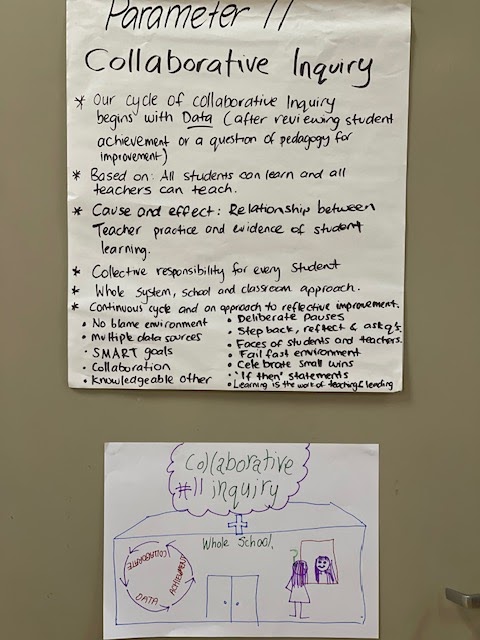 Parameter 11
Collaborative Inquiry
* Our cycle of collaborative Inquiry
begins with Data (after reviewing student
achievement or a question of pedagogy for
improvement)
* Based on: All students can learn and all
teachers can teach.
* Cause and effect: Relationship between
Teacher practice and evidence of student
learning.
* Collective responsibility for every Student
* Whole system, school and classroom approach.
* Continuous cycle and an approach to reflective improvement.
• No blame environment
• Multiple data sources
• SMART goals
• Collaboration
• Knowledgeable other
• Deliberate pauses
• Step back, reflect & ask q's.
• Faces of students and teachers.
• 'Fail fast environment
• Celebrate small wins
• "If then" statements
• Learning is the work of teaching & leading
Collaborative
#11 inquiry
Whole School.
COLLABORATE
ACHIEVEMENT
DATA
?